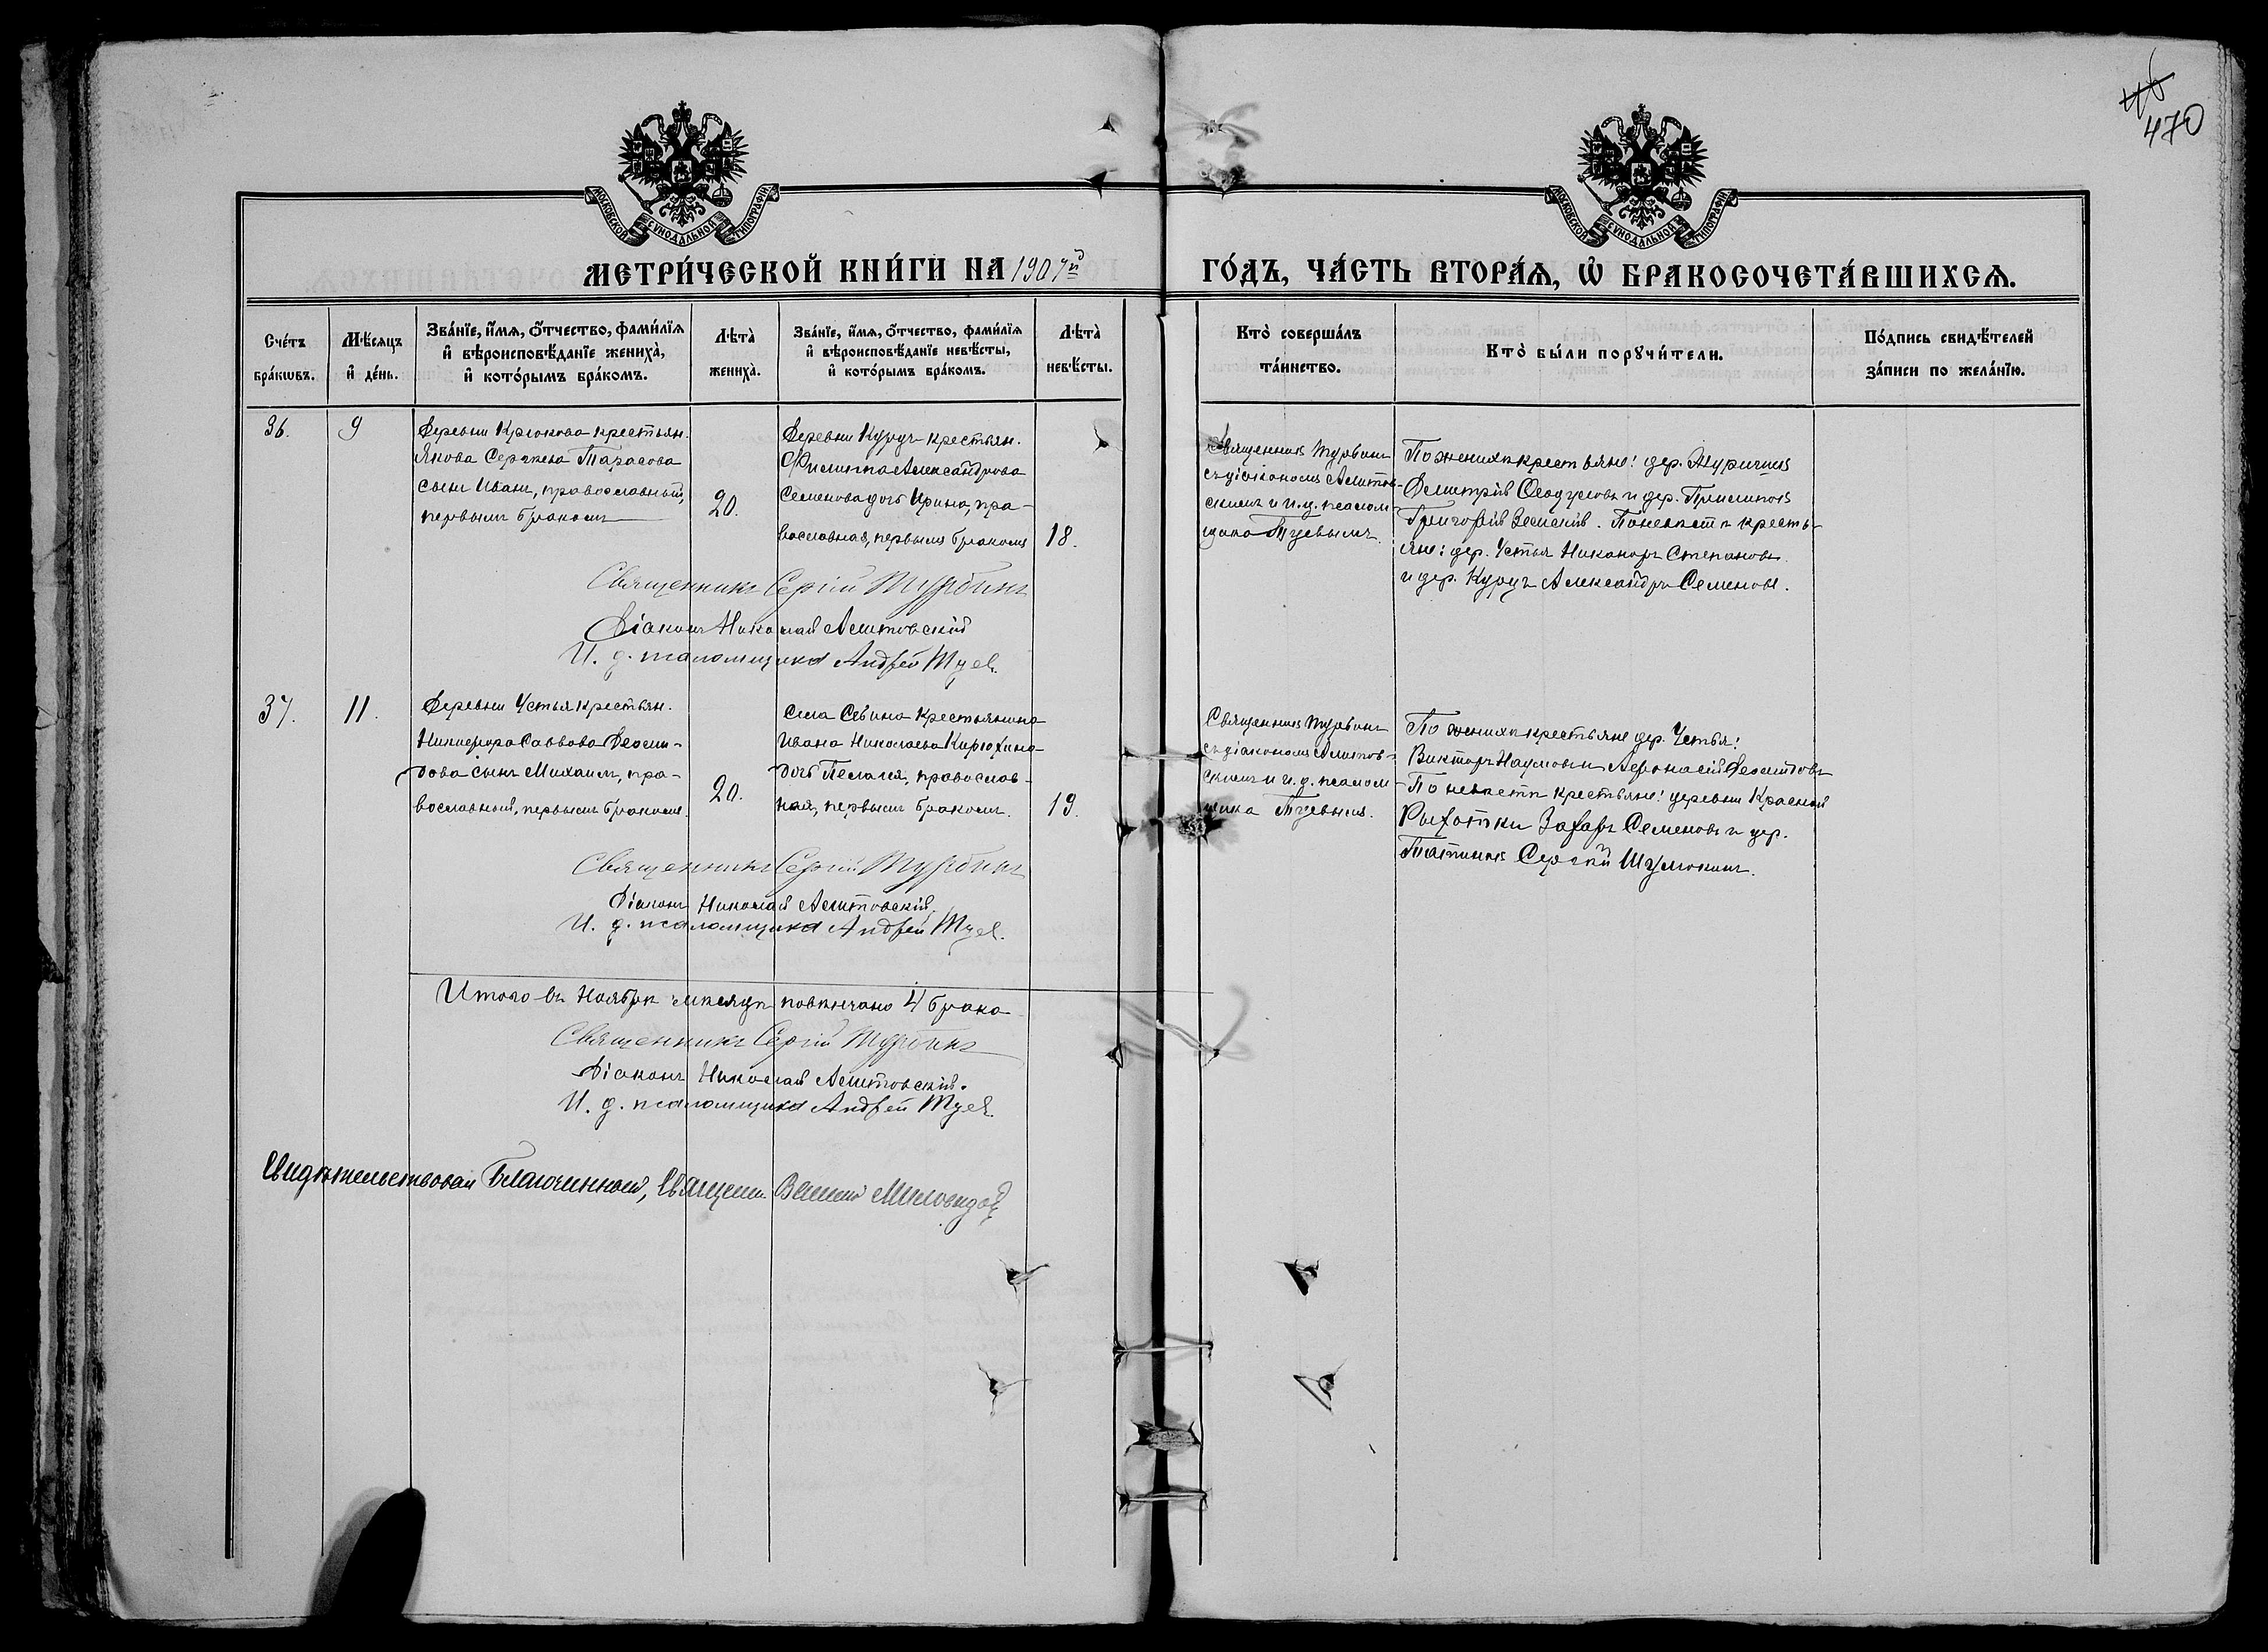 46
470
МОСКОВСКОЙ СѴНОДАЛЬНОЙ ТИПОГРАФІИ
МОСКОВСКОЙ СѴНОДАЛЬНОЙ ТИПОГРАФІИ
МЕТРИ́ЧЕСКОЙ КНИ́ГИ НА 1907й ГО́ДЪ, ЧА́СТЬ ВТОРА́Ѧ, Ѽ БРАКОСОЧЕТА́ВШИХСѦ.
Сче́тъ бра́кѡвъ.
Мѣ́сѧцъ и҆ де́нь.
Зва́нїе, и҆́мѧ, ѻ҆́тчество, фами́лїѧ
и҆ вѣроисповѣ́данїе жениха̀,
и҆ кото́рымъ бра́комъ.
Лѣта̀
жениха̀.
Зва́нїе, и҆́мѧ, ѻ҆́тчество, фами́лїѧ
и҆ вѣроисповѣ́данїе невѣ́сты,
и҆ кото́рымъ бра́комъ.
Лѣта̀
невѣ́сты.
Кто̀ соверша́лъ
та́инство.
Кто̀ бы́ли порꙋчи́тели.
По́дпись свидѣ́телей
за́писи по жела́нїю.
36.
9
Деревни Крюкова крестьян.
Якова Сергѣева Тарасова
сынъ Иванъ, православный,
первымъ бракомъ
20.
Деревни Куруч крестьян.
Филиппа Александрова
Семенова дочь Ирина, пра-
вославная, первымъ бракомъ
18.
Священникъ Турбинъ
съ діакономъ Алитов-
скимъ и и.д. псалом-
щика Туевымъ.
По женихѣ крестьяне: дер.
Димитрій Ѳеодуловъ и дер.
Григорій. По невѣстѣ кресть-
яне: дер. Устья Никаноръ Степановъ
и дер. Куруч Александръ Семеновъ.
Священникъ Сергій Турбинъ
Діаконъ Николай Алитовскій
И. д. псаломщика Андрей Туев.
37.
11.
Деревни Устья крестьян.
Никифора Саввова Деоми-
дова сынъ Михаилъ, пра-
вославный, первымъ бракомъ.
20.
Села Севина крестьянина
Ивана Николаева Кирюхина
дочь Пелагія, православ-
ная, первымъ бракомъ.
19.
Священникъ Турбинъ
съ діакономъ Алитов-
скимъ и и.д. псалом-
щика Туевымъ.
По женихѣ крестьяне дер. Устья:
Викторъ Наумовъ и Афанасій Деомидовъ
По невѣстѣ крестьяне: деревни Красной
Захаръ Семеновъ и дер.
Сергѣй
Священникъ Сергій Турбинъ
Діаконъ Николай Алитовскій.
И. д. псаломщика Андрей Туев.
Итого въ Ноябрѣ мѣсяцѣ повѣнчано 4 брака
Священникъ Сергій Турбинъ
Діаконъ Николай Алитовскій.
И. д. псаломщика Андрей Туев.
Свидѣтельствовалъ Благочинный, Священ. Миловидовъ